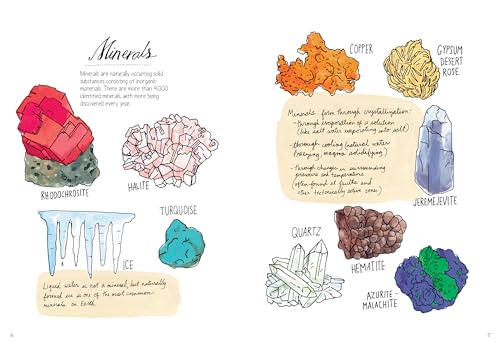 Minerals
Minerals are naturally occurring solid
substances consisting of inorganic
materials. There are more than 4,000
identified minerals, with more being
discovered every year.
RHODOCHROSITE
HALITE
TURQUOISE
ICE
Liquid water is not a mineral, but naturally
formed ice is one of the most common
minerals on Earth.
COPPER
GYPSUM
DESERT
ROSE
Minerals form through crystallization:
-through evaporation of a solution
(like salt water evaporating into salt)
-through cooling (natural water
freezing, magma solidifying)
-through changes in surrounding
pressure and temperature
(often found at faults and
other tectonically active zones)
JEREMEJEVITE
QUARTZ
HEMATITE
AZURITE-
MALACHITE